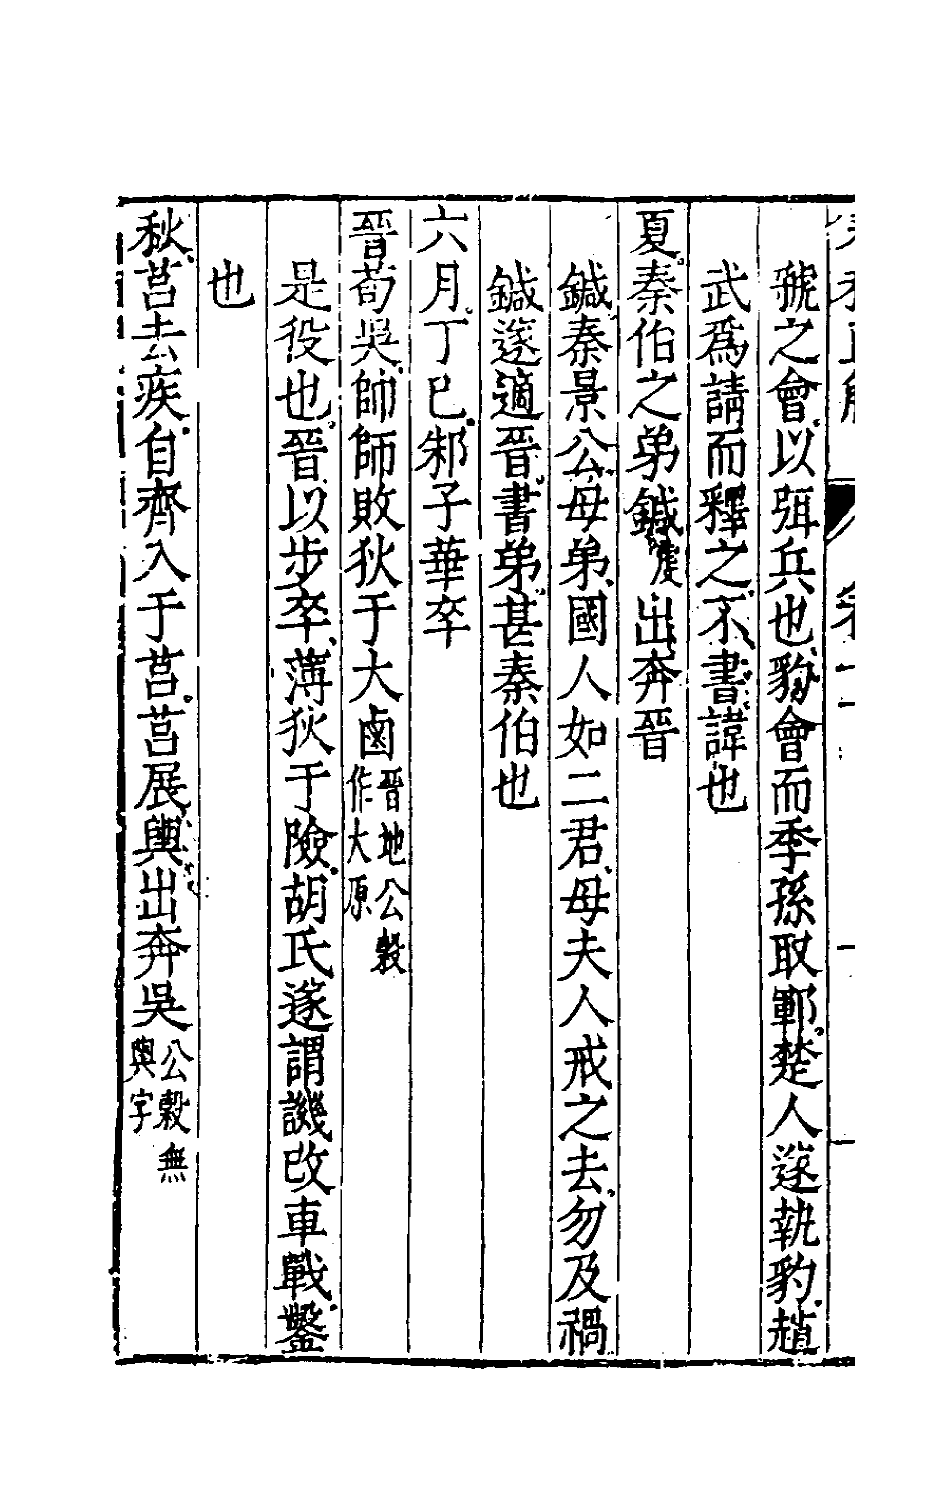 虢之會以弭兵也豹會而季孫取鄆楚人遂執豹趙
武爲請而釋之不書諱也
夏秦伯之弟鍼虔出奔晉
鍼秦景公母弟國人如二君母夫人戒之去勿及禍
鍼遂適晉書弟甚秦伯也
六月丁巳邾子華卒
晉荀吳帥師敗狄于大鹵晉地公穀作大原
是役也晉以步卒薄狄于險胡氏遂謂譏改車戰鑿
也
秋莒去疾自齊入于莒莒展輿出奔吳公穀無輿字